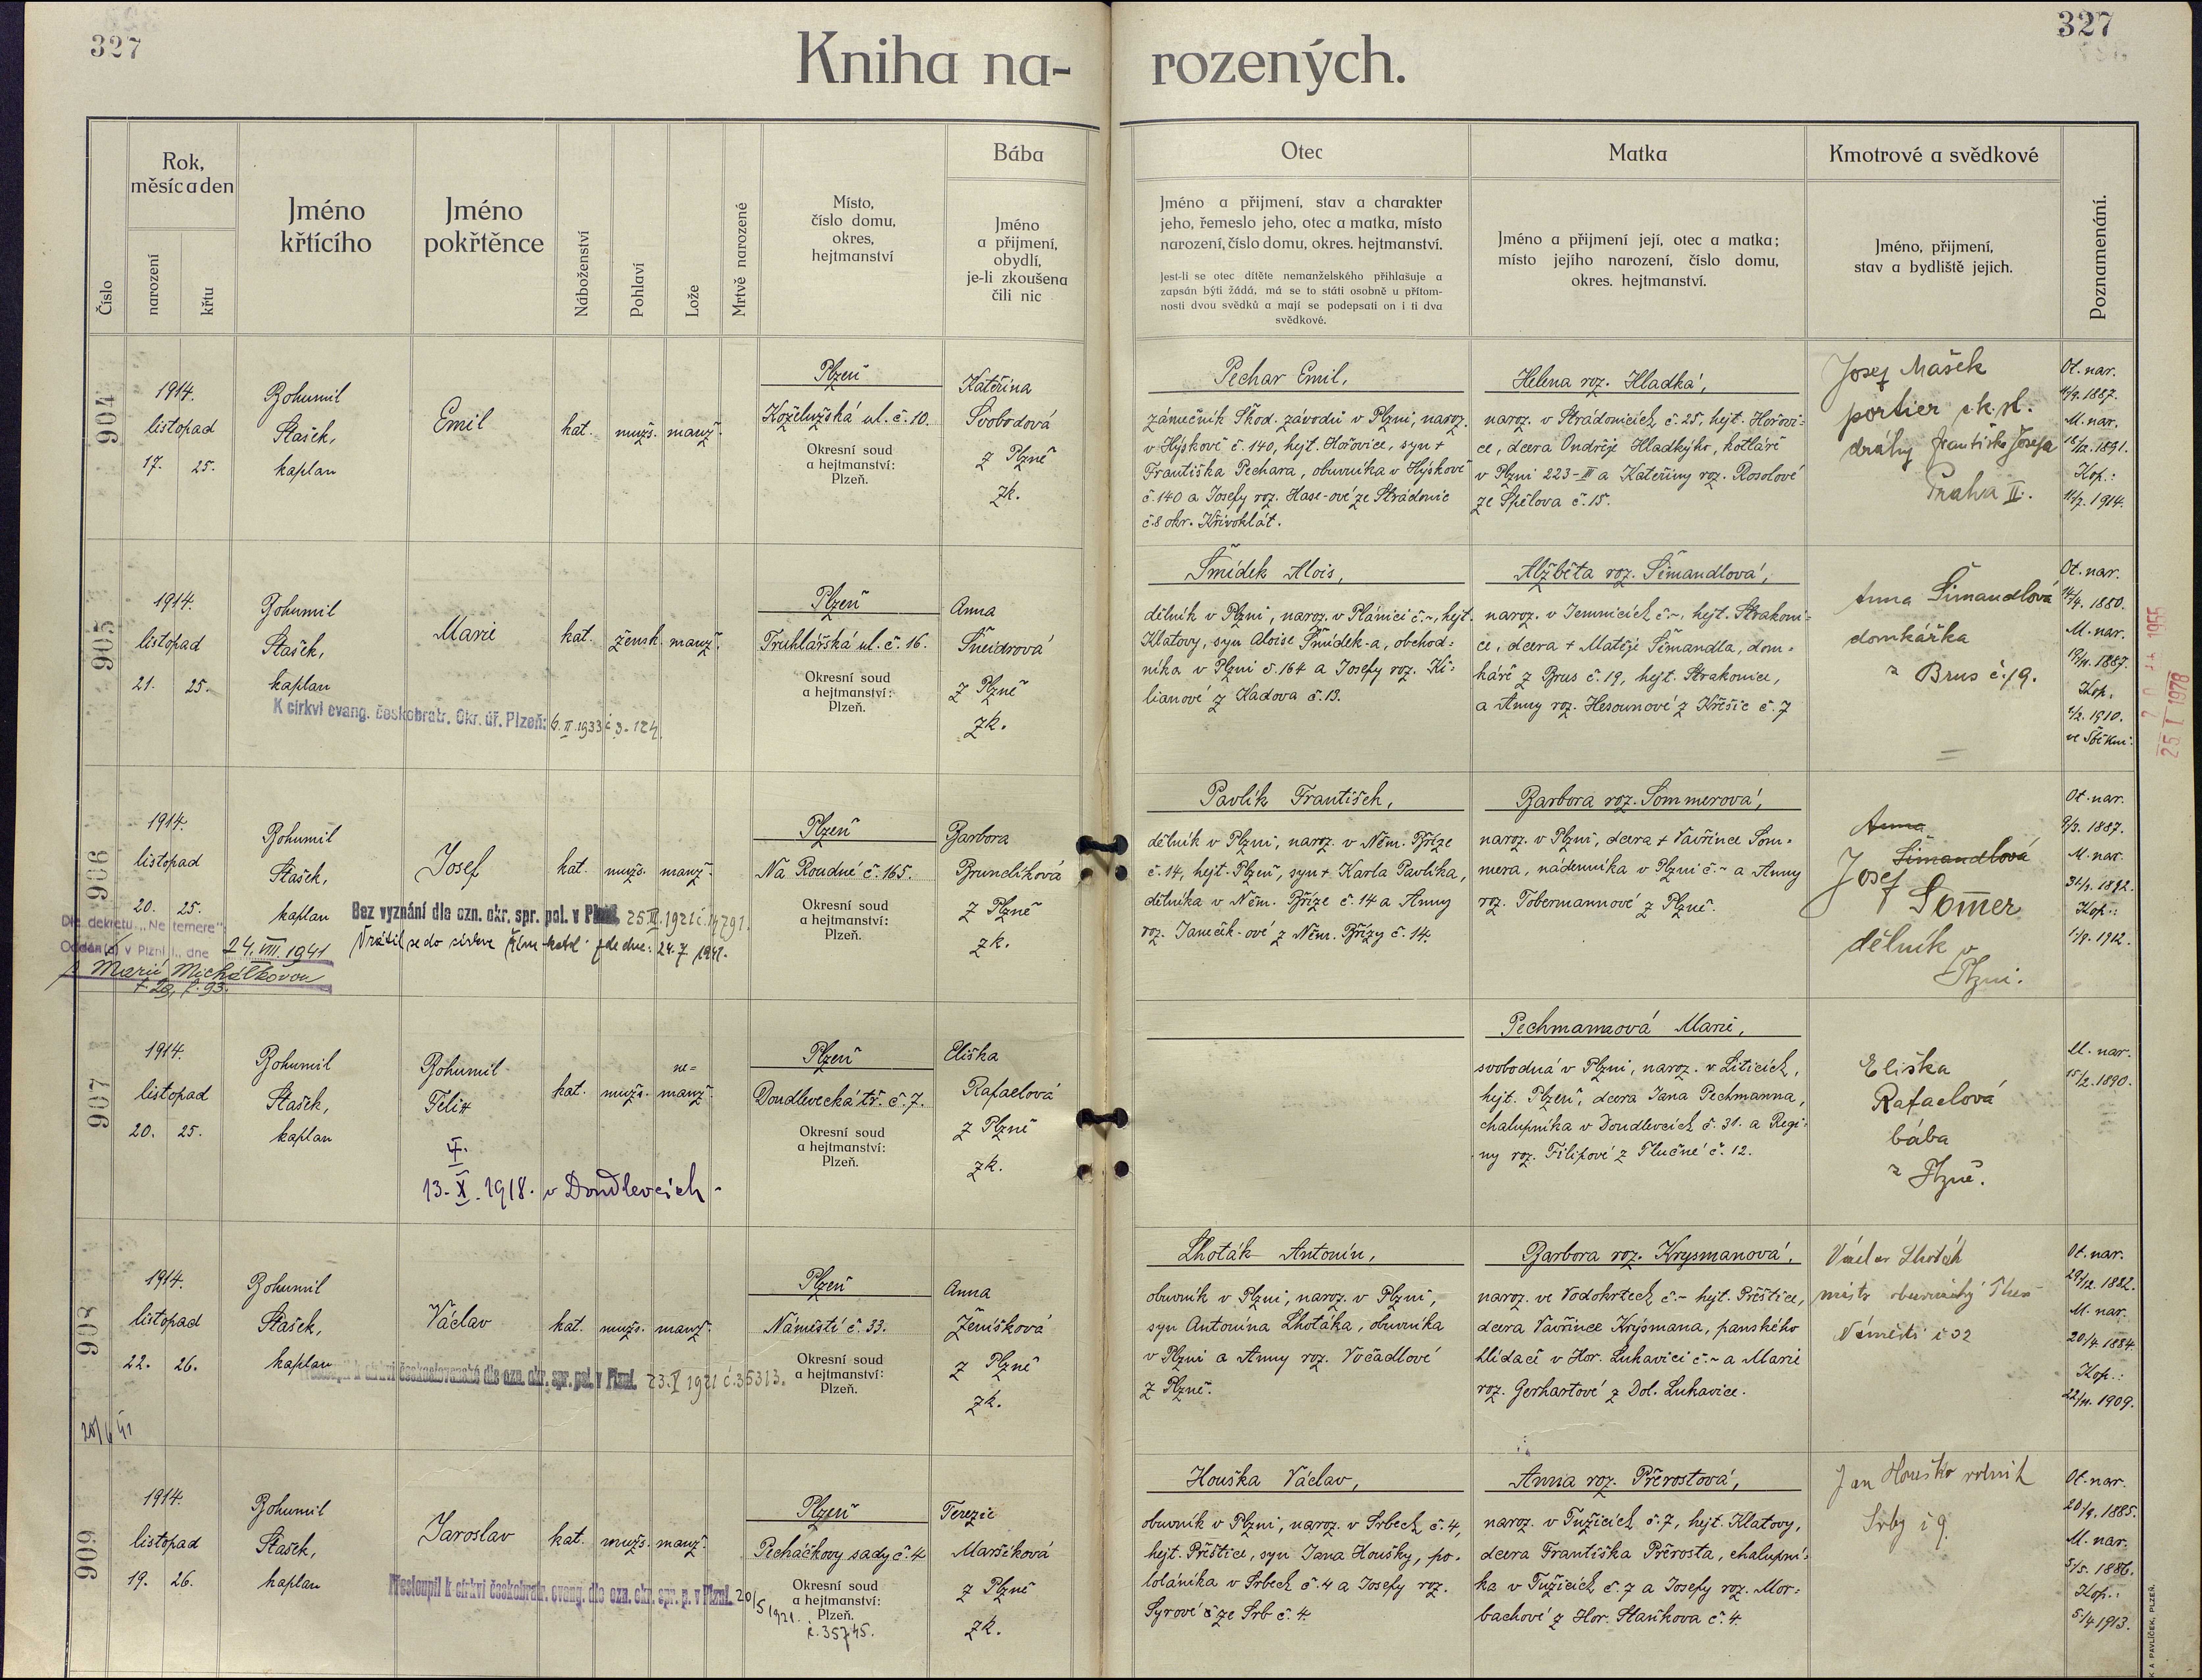 327
327
Kniha na-
rozených.
Číslo
Rok,
měsíc a den
narození
křtu
Jméno
křtícího
Jméno
pokřtěnce
Náboženství
Pohlaví
Lože
Mrtvě narozené
Místo,
číslo domu,
okres,
hejtmanství
Bába
Jméno
a přijmení,
obydlí,
je-li zkoušena
čili nic
Otec
Jméno a přijmení, stav a charakter
jeho, řemeslo jeho, otec a matka, místo
narození, číslo domu, okres. hejtmanství.
Jest-li se otec dítěte nemanželského přihlašuje a
zapsán býti žádá, má se to státi osobně u přítom-
nosti dvou svědků a mají se podepsati on i ti dva
svědkové.
Matka
Jméno a přijmení její, otec a matka;
místo jejího narození, číslo domu,
okres. hejtmanství.
Kmotrové a svědkové
Jméno, přijmení,
stav a bydliště jejich.
Poznamenání.
904
1914.
listopad
17. 25.
Bohumil
Stašek,
kaplan
Emil
kat. mužs. manž.
Plzeň
Koželužská ul. č. 10.
Okresní soud
a hejtmanství:
Plzeň.
Kateřina
Svobodová
z Plzně
zk.
Pechar Emil,
zámečník Škod. závodů v Plzni, naroz.
v Hýskově č. 140, hejt. Hořovice, syn +
Františka Pechara, obuvníka v Hýskově
č. 140 a Josefy roz. Hase-ové ze Strádonic
č. 8 okr. Křivoklát.
Helena roz. Hladká,
naroz. v Strádonicích č. 25, hejt. Hořovi-
ce, dcera Ondřeje Hladkýho, kotláře
v Plzni 223-III a Kateřiny roz. Rosolové
ze Spělova č. 15.
Josef Mašek
portier c. k. st.
dráhy Františka Josefa
Praha II.
Ot. nar.
1887.
M. nar.
1891.
Kop.:
1914.
905
1914.
listopad
21. 25.
Bohumil
Stašek,
kaplan
Marie
kat. žensk. manž.
K církvi evang. českobratr. Okr. úř. Plzeň: 6. II. 1933 č. 3-124.
Plzeň
Truhlářská ul. č. 16.
Okresní soud
a hejtmanství:
Plzeň.
Anna
Šneidrová
z Plzně
zk.
Šmídek Alois,
dělník v Plzni, naroz. v Plánici č. ~, hejt.
Klatovy, syn Aloise Šmídek-a, obchod=
níka v Plzni č. 164 a Josefy roz. Ki=
lianové z Kadova č. 13.
Alžběta roz. Šimandlová,
naroz. v Jemnicích č. ~, hejt. Strakoni=
ce, dcera + Matěje Šimandla, dom=
káře z Brus č. 19, hejt. Strakonice,
a Anny roz. Hesounové z Křešic č. 7
Anna Šimandlová
domkářka
z Brus č. 19.
Ot. nar.
1880.
M. nar.
1887.
Kop.
1910.
1955
25 I 1978
906
1914.
listopad
20. 25.
Bohumil
Stašek,
kaplan
Josef
kat. mužs. manž.
Bez vyznání dle ozn. okr. spr. pol. v Plzni, 25. III. 1921 č. 14791.
Vrátil se do církve řím-katol. zde dne: 24. 7. 1941.
Dle dekretu „Ne temere"
Oddán(a) v Plzni I., dne 24. VIII. 1941
s Marií Michálkovou
t. 29, f. 93.
Plzeň
Na Roudné č. 165.
Okresní soud
a hejtmanství:
Plzeň.
Barbora
Brunclíková
z Plzně
zk.
Pavlík František,
dělník v Plzni, naroz. v Něm. Bříze
č. 14, hejt. Plzeň, syn + Karla Pavlíka,
dělníka v Něm. Bříze č. 14 a Anny
roz. Janeček-ové z Něm. Břízy č. 14.
Barbora roz. Sommerová,
naroz. v Plzni, dcera + Vavřince Som=
mera, nádenníka v Plzni č. ~ a Anny
roz. Tobermannové z Plzně.
Anna
Šimandlová
Josef
Somer
dělník v
Plzni.
Ot. nar.
1887.
M. nar.
1892.
Kop.:
1912.
907
1914.
listopad
20. 25.
Bohumil
Stašek,
kaplan
Bohumil
Felix
†.
13. X. 1918. v Doudlevcích
kat. mužs. ne=
manž.
Plzeň
Doudlevecká tř. č. 7.
Okresní soud
a hejtmanství:
Plzeň.
Eliška
Rafaelová
z Plzně
zk.
Pechmannová Marie,
svobodná v Plzni, naroz. v Liticích,
hejt. Plzeň, dcera Jana Pechmanna,
chalupníka v Doudlevcích č. 31. a Regi=
ny roz. Filipové z Tlučné č. 12.
Eliška
Rafaelová
bába
z Plzně.
M. nar.
15/2. 1890.
908
1914.
listopad
22. 26.
Bohumil
Stašek,
kaplan
Václav
kat. mužs. manž.
Přestoupil k církvi československé dle ozn. okr. spr. pol. v Plzni. 23. V 1921 č. 35313.
20/6 41
Plzeň
Náměstí č. 33.
Okresní soud
a hejtmanství:
Plzeň.
Anna
Ženíšková
z Plzně
zk.
Lhoták Antonín,
obuvník v Plzni, naroz. v Plzni,
syn Antonína Lhotáka, obuvníka
v Plzni a Anny roz. Vočadlové
z Plzně.
Barbora roz. Krysmanová,
naroz. ve Vodokrtech č. ~ hejt. Přeštice,
dcera Vavřince Krysmana, panského
hlídače v Hor. Lukavici č. ~ a Marie
roz. Gerhartové z Dol. Lukavice.
Václav Lhoták
mistr obuvnický Plzeň
Náměstí č 32
Ot. nar.
29/12. 1882.
M. nar.
20/4. 1884.
Kop.:
22/11. 1909.
909
1914.
listopad
19. 26.
Bohumil
Stašek,
kaplan
Jaroslav
kat. mužs. manž.
Přestoupil k církvi českobratr. evang. dle ozn. okr. spr. p. v Plzni. 20/5 1921.
č. 35745.
Plzeň
Pecháčkovy sady č. 4
Okresní soud
a hejtmanství:
Plzeň.
Terezie
Maršíková
z Plzně
zk.
Houška Václav,
obuvník v Plzni, naroz. v Srbech č. 4,
hejt. Přeštice, syn Jana Houšky, po=
loláníka v Srbech č. 4 a Josefy roz.
Syrové ze Srb č. 4.
Anna roz. Přerostová,
naroz. v Tužicích č. 7, hejt. Klatovy,
dcera Františka Přerosta, chalupní=
ka v Tužicích č. 7 a Josefy roz. Mor=
bachové z Hor. Staňkova č. 4.
Jan Houška rolník
Srby č 9.
Ot. nar.
20/9. 1885.
M. nar.
5/5. 1886.
Kop.:
5/4 1913.
K A PAVLÍČEK, PLZEŇ.